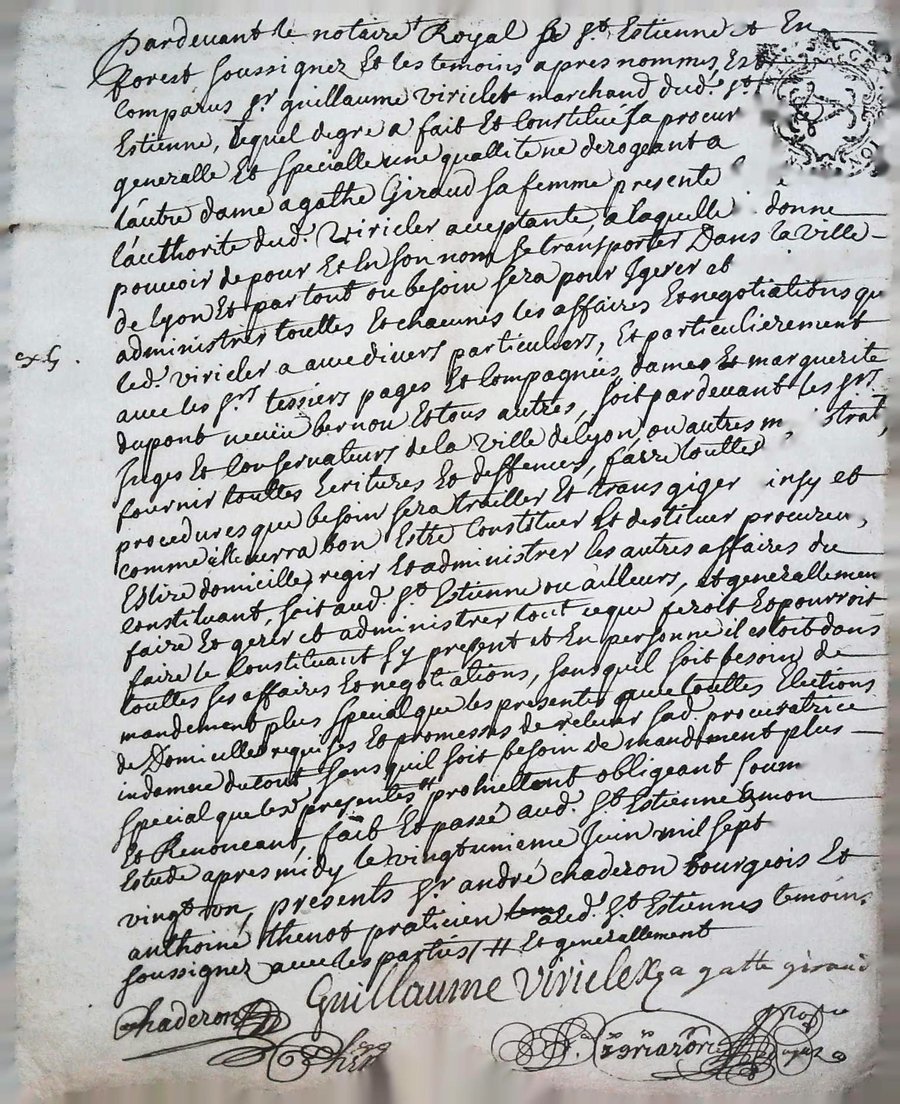 Pardevant le notaire Royal de St. Estienne et En
forest soussignez Et les temoins apres nommes, Est
Comparus Sr. guillaume viricler marchand dud. St.
Estienne, lequel de gre a fait Et Constitué sa procur
generalle Et specialle une quallite ne derogeant a
lautre dame agathe Giraud sa femme presente
l'authorite dud. viricler acceptante, a laquelle donne
pouvoir de pour Et En son nom se transporter Dans la ville
de lyon Et par tout ou besoin sera pour Igerer et
administrer touttes Et chacunes les affaires Et negotiations qu
led. viricler a avec divers particuliers, Et particulierement
avec les Srs. tessiers pages Et Compagnies, dames Et marguerite
dupont veuve bernou Et tous autres, soit pardevant les Srs.
Juges Et Conservateurs de la ville de lyon, ou autres m strat,
fournir touttes Ecritures Et deffences, faire touttes
procedures que besoin sera traitter Et transgiger insy et
comme Elle verra bon Estre Constituer Et destituer procureu,
Eslire domicille, regir Et administrer les autres affaires du
constituant, soit aud. St. Estienne ou ailleurs, et generallemen
faire Et gerer et administrer tout ce que feroit Et pourroit
faire le Constituant sy present et En personne il estoit dans
touttes ses affaires Et negotiations, sans quil soit besoin de
mandement plus special que les presentes avec touttes Elections
de Domicilles requises Et promesses de relever sad. procuratrice
indemne du tout, sans quil soit besoin de mandement plus
special que les presentes # promettant obligeant soum
Et Renonceant, fait Et passé aud. St. Estienne a mon
Estude apres midy le vingtunieme Juin mil sept
vingt un, presents Sr. andré chaderon bourgeois Et
anthoine thenot praticien aud. St. Estienne temoins
soussignez avec les parties / # Et generallement
Guillaume viricler agatte giraud
Chaderon